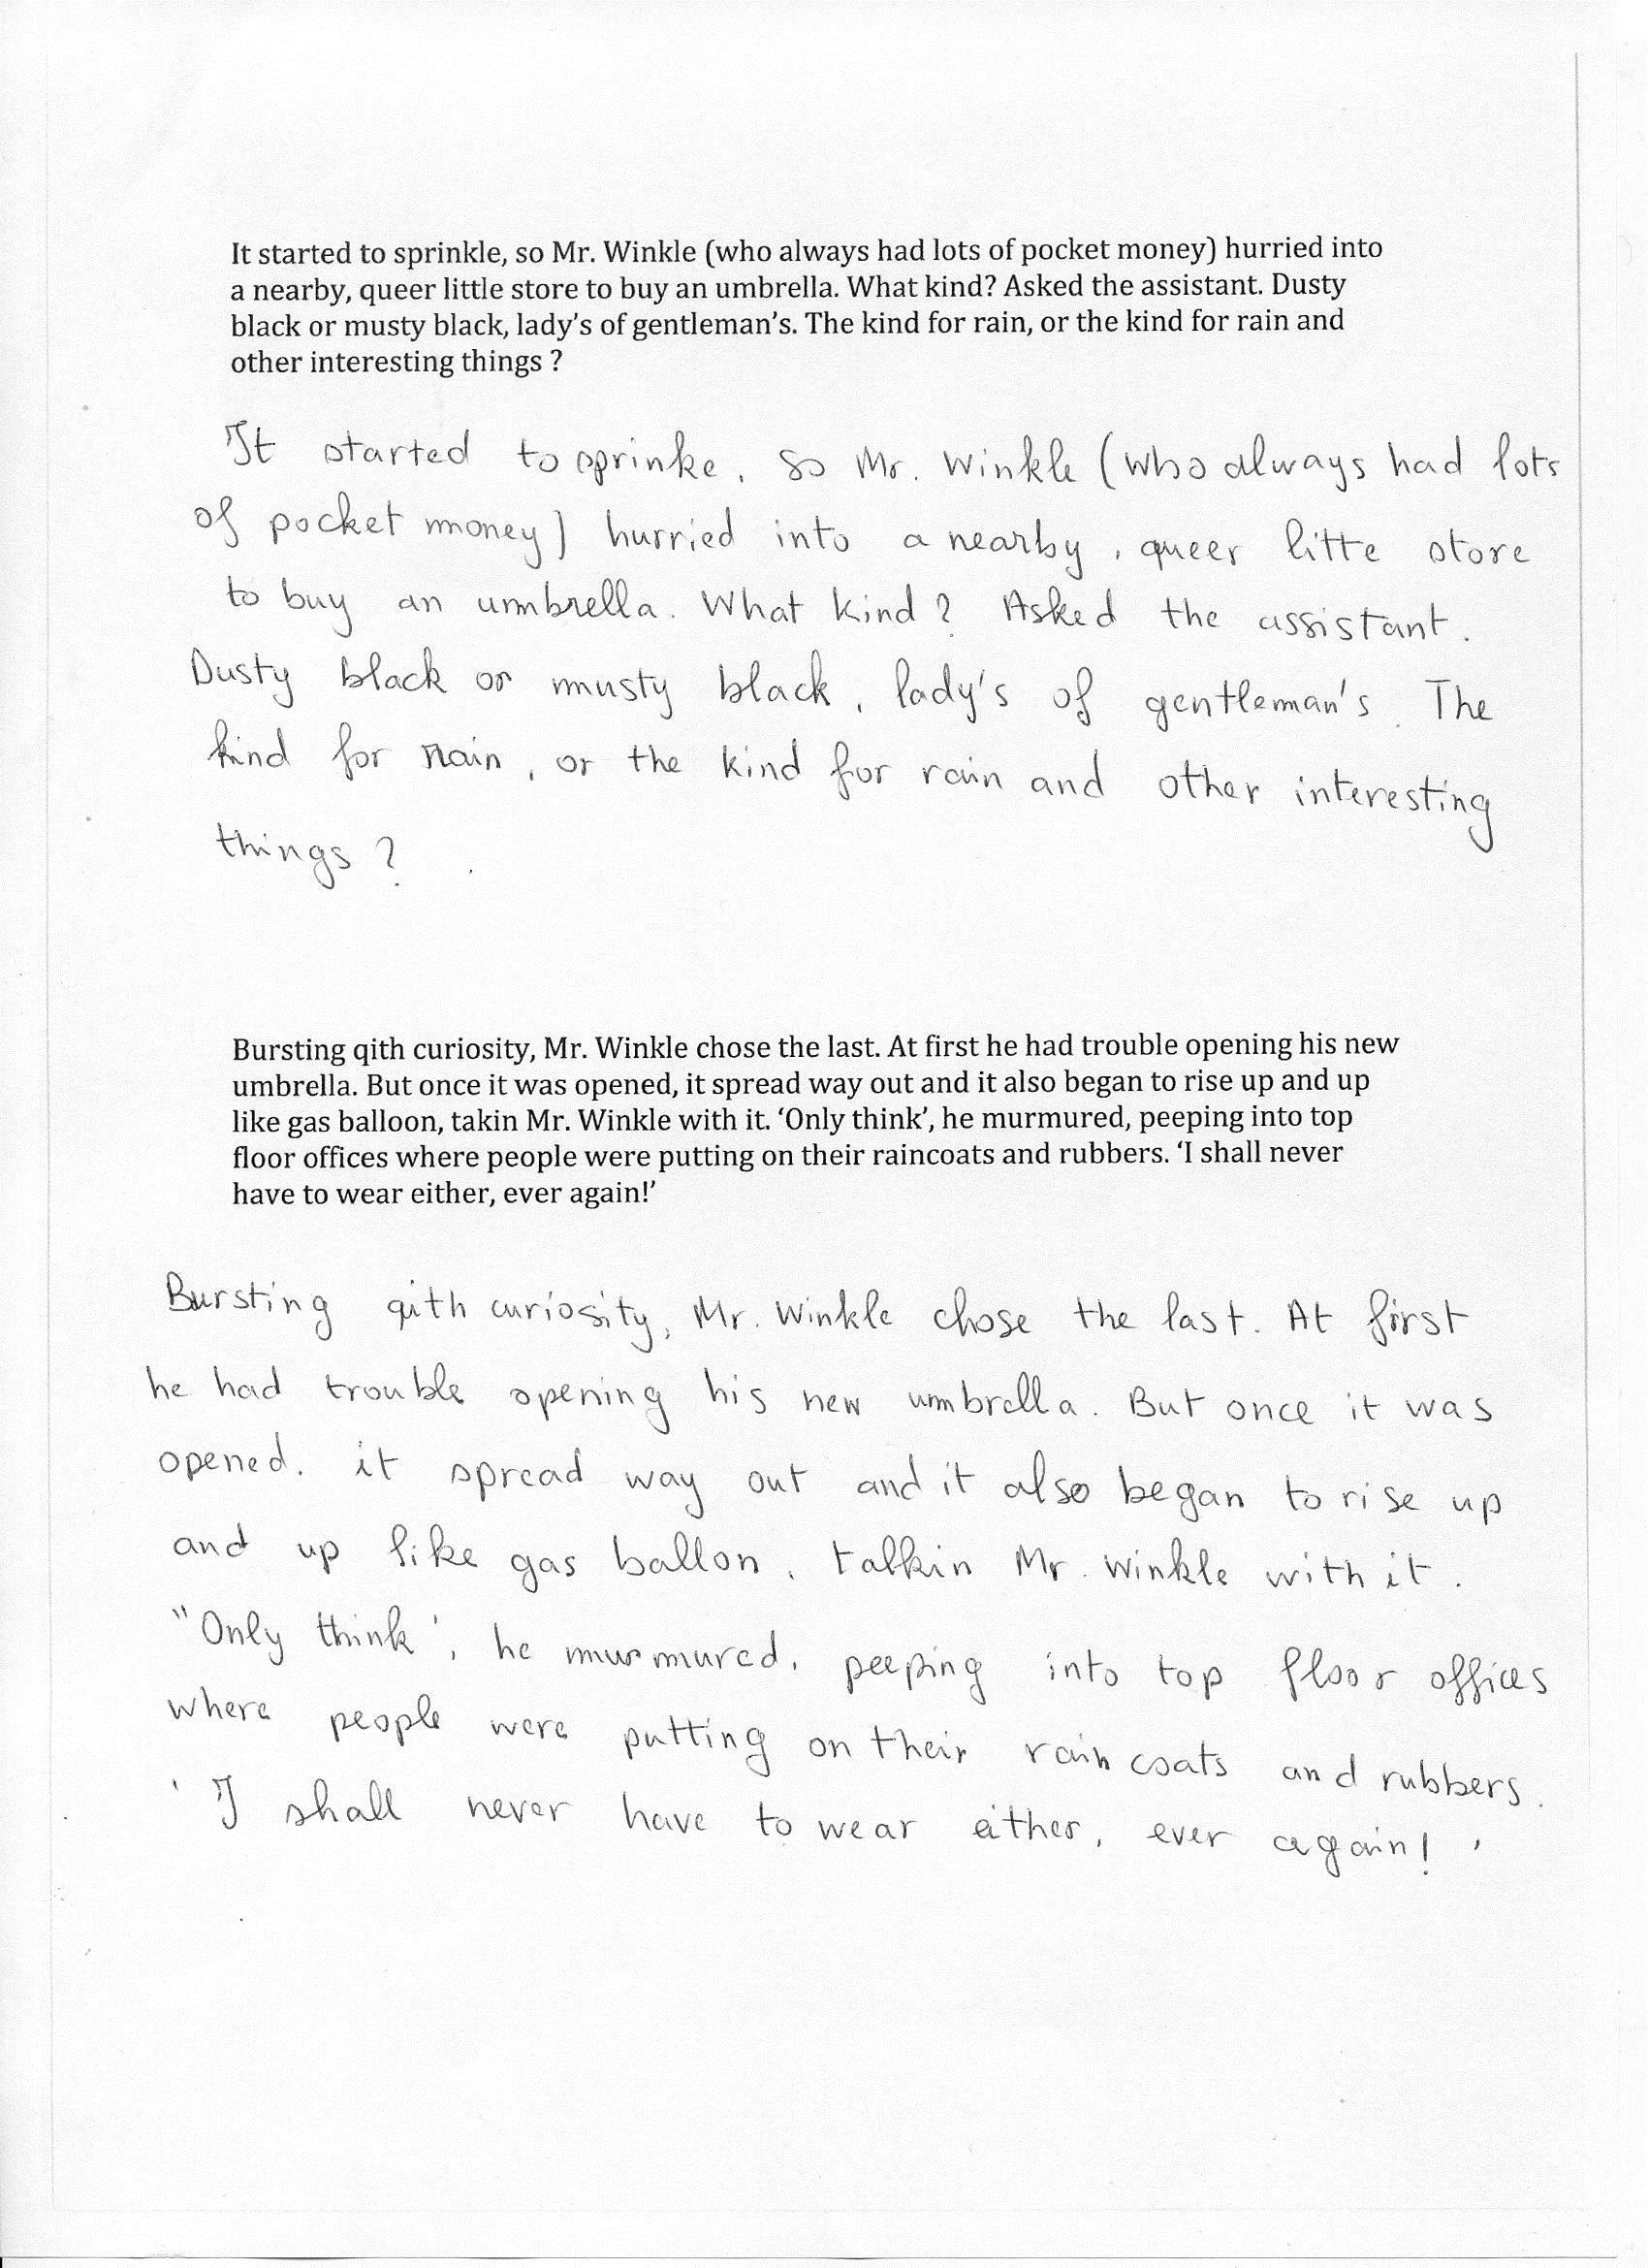 It started to sprinkle, so Mr. Winkle (who always had lots of pocket money) hurried into
a nearby, queer little store to buy an umbrella. What kind? Asked the assistant. Dusty
black or musty black, lady's of gentleman's. The kind for rain, or the kind for rain and
other interesting things ?
It started to sprinke, so Mr. Winkle (who always had lots
of pocket money) hurried into a nearby, queer litte store
to buy an umbrella. What kind? Asked the assistant.
Dusty black or musty black, lady's of gentleman's. The
kind for rain, or the kind for rain and other interesting
things?
Bursting qith curiosity, Mr. Winkle chose the last. At first he had trouble opening his new
umbrella. But once it was opened, it spread way out and it also began to rise up and up
like gas balloon, takin Mr. Winkle with it. ‘Only think’, he murmured, peeping into top
floor offices where people were putting on their raincoats and rubbers. ‘I shall never
have to wear either, ever again!’
Bursting qith curiosity, Mr. Winkle chose the last. At first
he had trouble opening his new umbrella. But once it was
opened. it spread way out and it also began to rise up
and up like gas ballon, talkin Mr. Winkle with it.
"Only think', he murmured, peeping into top floor offices
where people were putting on their raincoats and rubbers.
'I shall never have to wear either, ever again!'